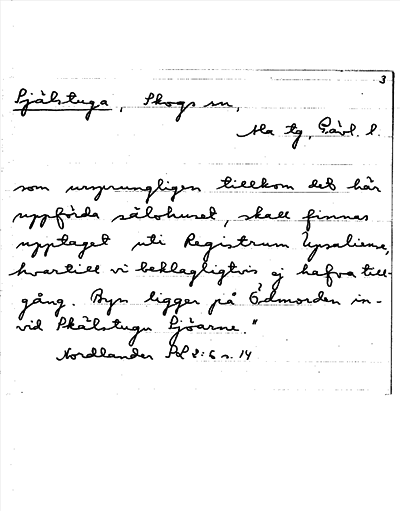 3
Själstuga, Skogs sn,
Ala tg, Gävl. l.
som ursprungligen tillkom det här
uppförda sälohuset, skall finnas
upptaget uti Registrum Upsaliense,
hvartill vi beklagligtvis ej hafva till-
gång. Byn ligger på Ödmorden in-
vid Skålstugu Sjöarne."
Nordlander 2:6 s. 14